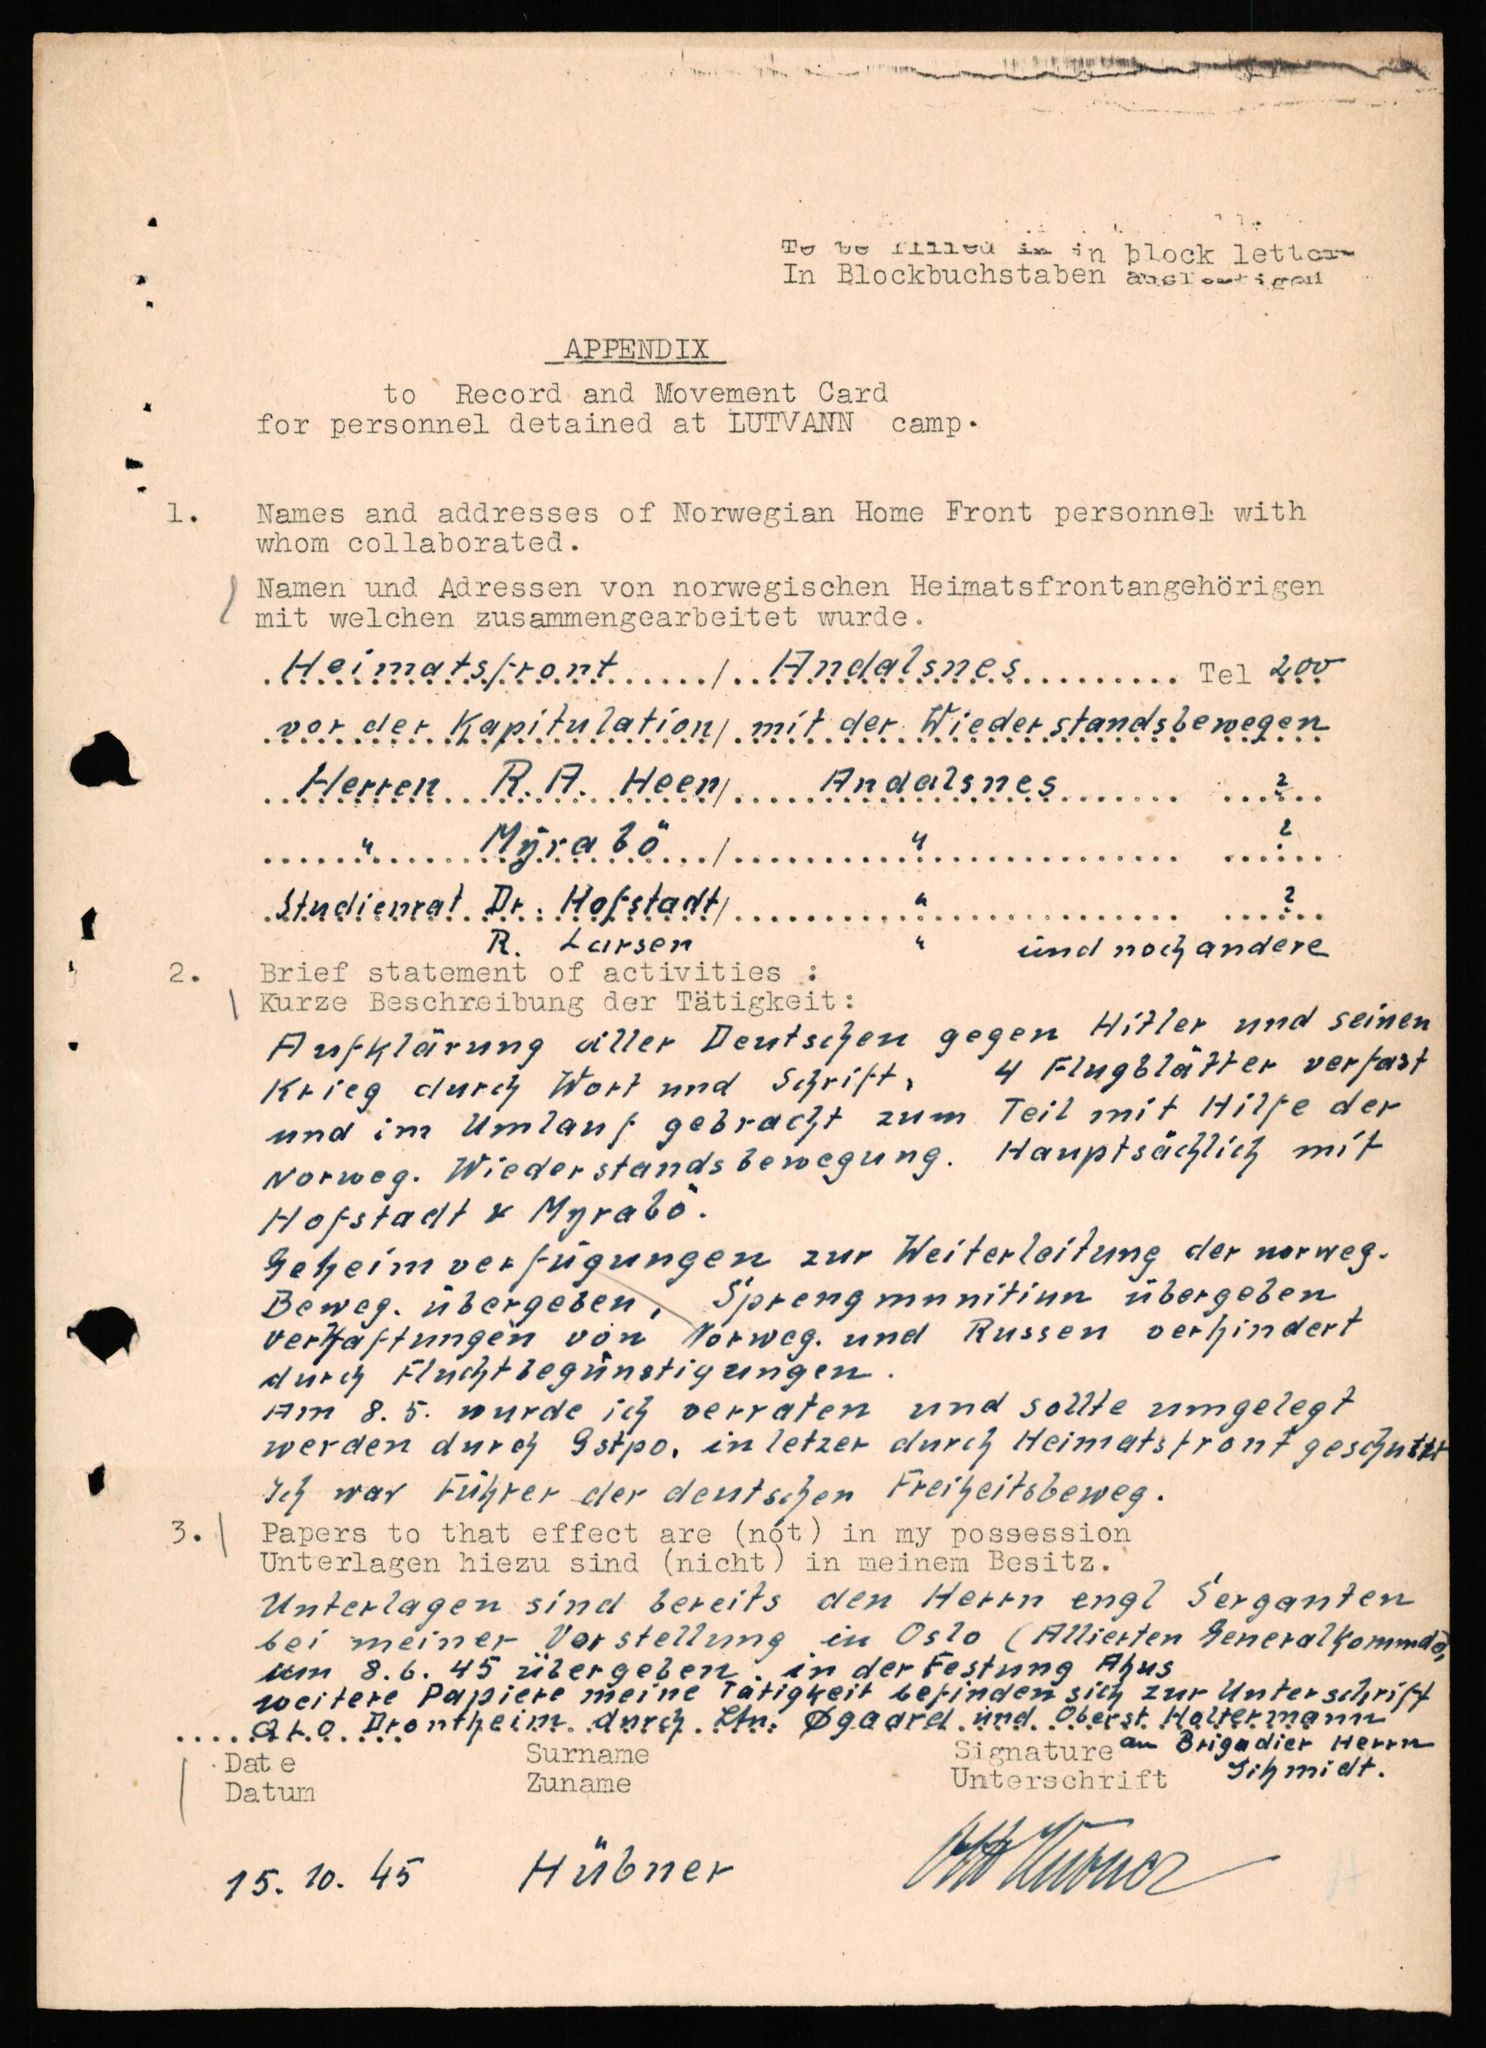 To be filled in in block letter
In Blockbuchstaben ausfertigen
APPENDIX
to Record and Movement Card
for personnel detained at LUTVANN camp.
1. Names and addresses of Norwegian Home Front personnel with
whom collaborated.
Namen und Adressen von norwegischen Heimatsfrontangehörigen
mit welchen zusammengearbeitet wurde.
Heimatsfront / Andalsnes Tel 200
vor der Kapitulation / mit der Wiederstandsbewegen
Herren R. A. Heen / Andalsnes ?
" Myrabö / " ?
Studienrat Dr. Hofstadt / " ?
R. Larsen " und noch andere
2. Brief statement of activities :
Kurze Beschreibung der Tätigkeit:
Aufklärung aller Deutschen gegen Hitler und seinen
Krieg durch Wort und Schrift, 4 Flugblätter verfast
und im Umlauf gebracht zum Teil mit Hilfe der
Norweg. Wiederstandsbewegung. Hauptsächlich mit
Hofstadt & Myrabö.
Geheimverfügungen zur Weiterleitung der norweg.
Beweg. übergeben, Sprengmunition übergeben
verhaftungen von Norweg. und Russen verhindert
durch Fluchtbegünstigungen.
Am 8. 5. wurde ich verraten und sollte umgelegt
werden durch Gstpo, in letzer durch Heimatsfront geschützt
Ich war Führer der deutschen Freiheitsbeweg.
3. Papers to that effect are (not) in my possession
Unterlagen hiezu sind (nicht) in meinem Besitz.
Unterlagen sind bereits den Herrn engl Serganten
bei meiner Vorstellung in Oslo (Allierten Generalkommdo,
am 8. 6. 45 übergeben. in der Festung Ahus
weitere Papiere meine Tätigkeit befinden sich zur Unterschrift
Drontheim durch Ltn. Øgaard und Oberst Haltermann
an Brigadier Herrn
Schmidt.
Date Surname Signature
Datum Zuname Unterschrift
15. 10. 45 Hübner Otto Hübner